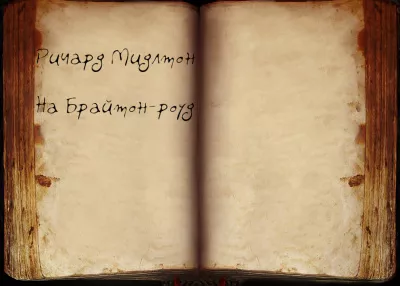 Ричард Мидлтон
На Брайтон-роуд